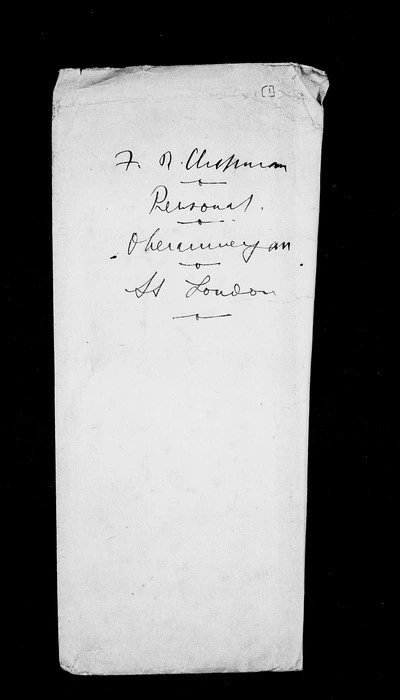 [1]
F. R. Chapman
Personal.
Oberammergau
SS London